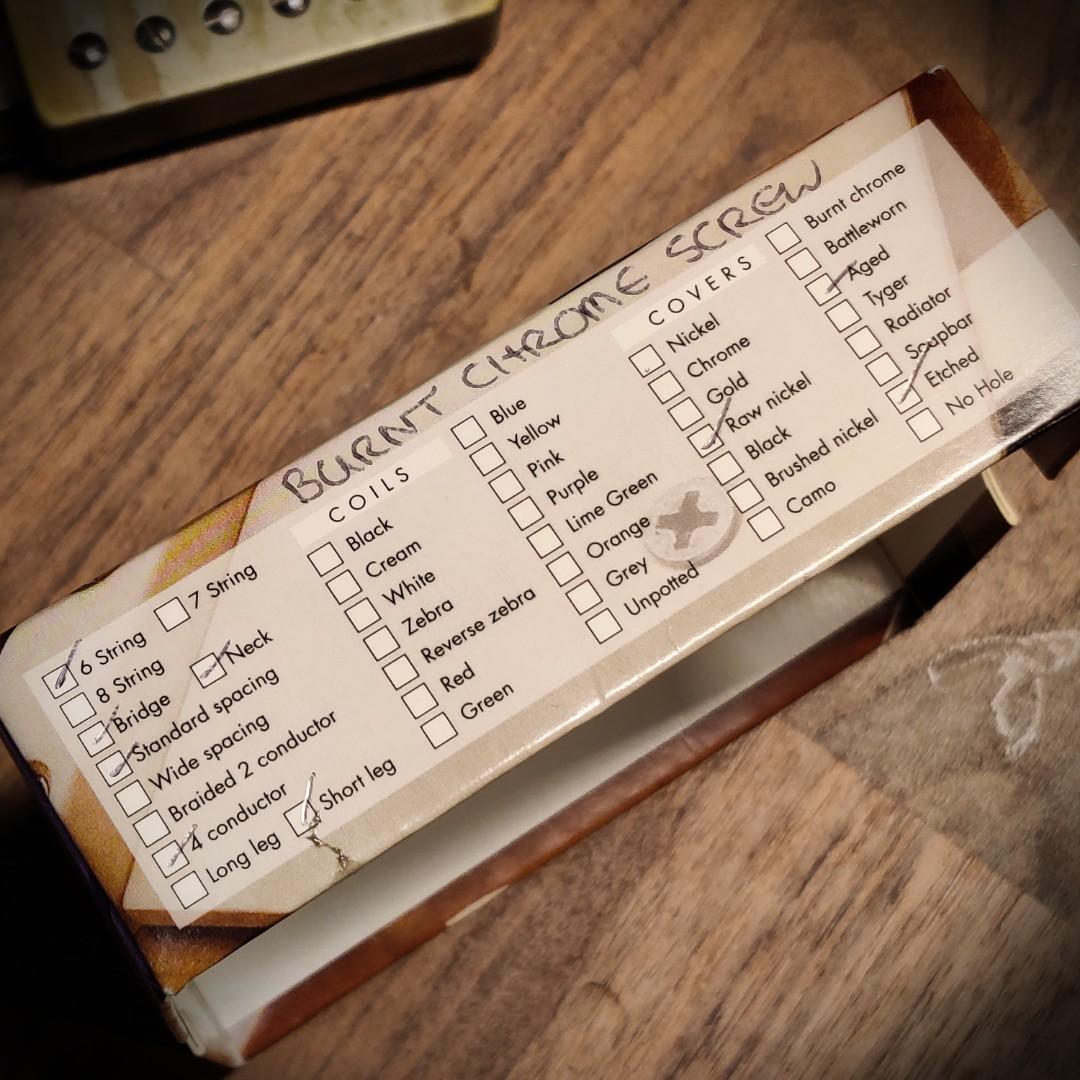 BURNT CHROME SCREW
6 String
7 String
8 String
Bridge
Neck
Standard spacing
Wide spacing
Braided 2 conductor
4 conductor
Long leg
Short leg
COILS
Black
Cream
White
Zebra
Reverse zebra
Red
Green
Blue
Yellow
Pink
Purple
Lime Green
Orange
Grey
Unpotted
COVERS
Nickel
Chrome
Gold
Raw nickel
Black
Brushed nickel
Camo
Burnt chrome
Battleworn
Aged
Tyger
Radiator
Soapbar
Etched
No Hole